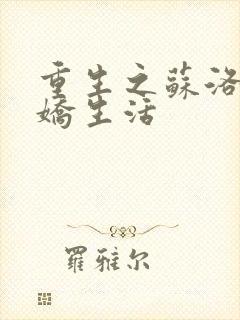 重生之蘇洛
嬌生活
羅雅尔